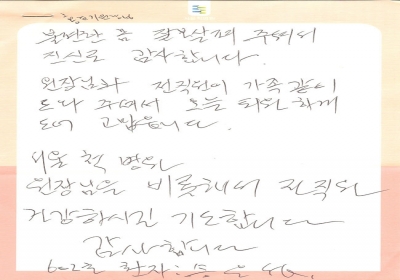 불편한 몸 잘 보살펴 주셔서
진심로 감사합니다.
원장님과 전직원이 가족같이
도와 주셔서 오늘 퇴원하게
되어 고맙습니다.
서울 척 병원
원장님을 비롯해서 전직원
건강하시길 기도합니다
감사합니다
602호 환자: 송